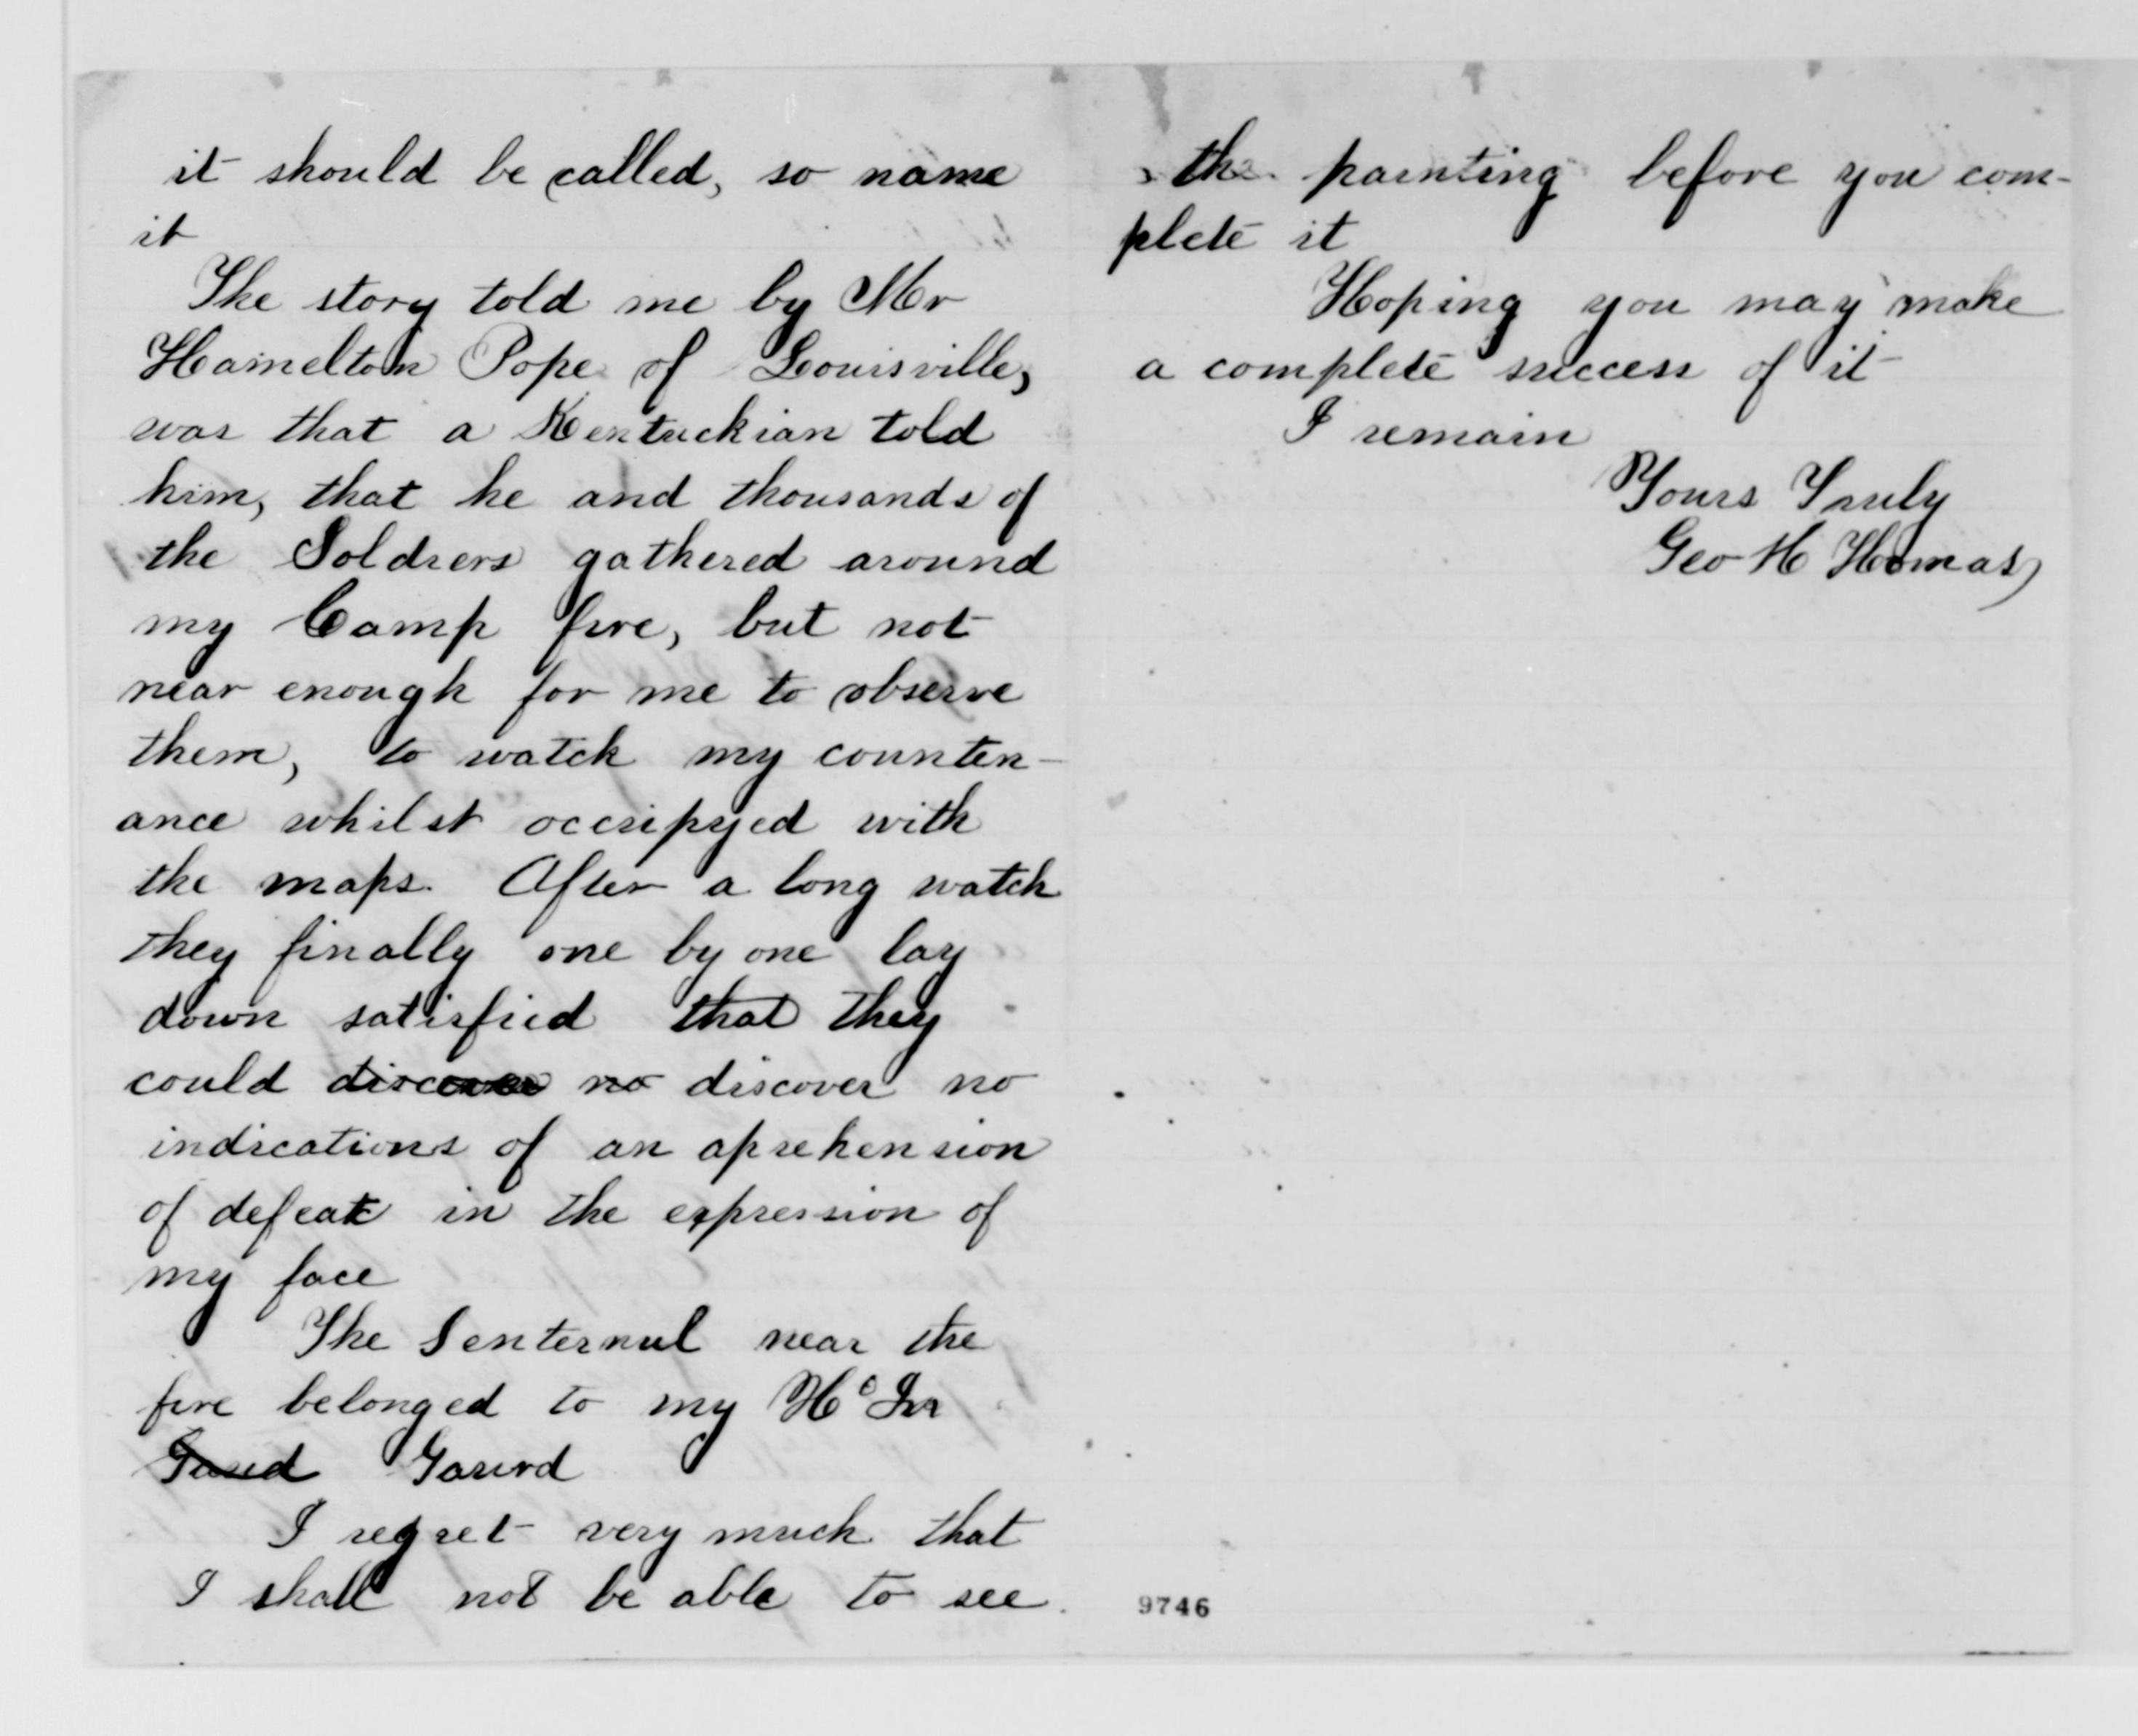 it should be called, so name
it
The story told me by Mr
Hamelton Pope of Louisville,
was that a Kentuckian told
him, that he and thousands of
the Soldiers gathered around
my Camp fire, but not
near enough for me to observe
them, to watch my counten-
ance whilst occupyed with
the maps. After a long watch
they finally one by one lay
down satisfied that they
could discover no discover no
indications of an aprehension
of defeat in the expression of
my face
The Senternul near the
fire belonged to my
Gaurd
I regret very much that
I shall not be able to see
the painting before you com-
plete it
Hoping you may make
a complete success of it
I remain
Yours Truly
Geo H Thomas
9746